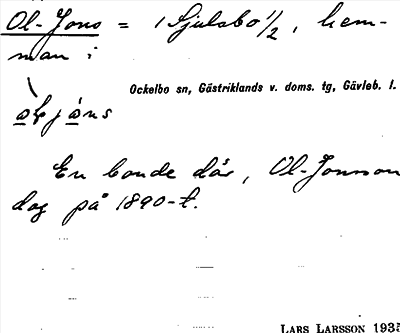 Ol-Jons = i Sjulsbo 1/2, hem-
man i
Ockelbo sn, Gästriklands v. doms. tg, Gävleb. l.
En bonde där, Ol-Jonsson
dog på 1890-t.
LARS LARSSON 1935